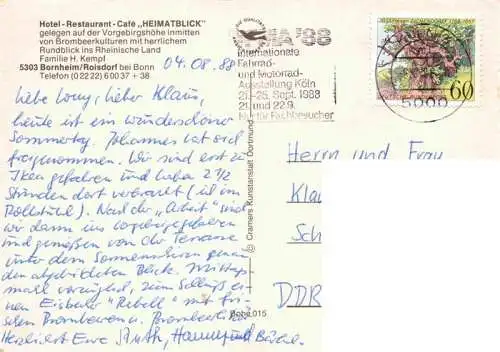 Hotel - Restaurant - Café „HEIMATBLICK"
gelegen auf der Vorgebirgshöhe inmitten
von Brombeerkulturen mit herrlichem
Rundblick ins Rheinische Land
Familie H. Kempf
5303 Bornheim/Roisdorf bei Bonn
Telefon (0 22 22) 6 00 37 + 38
04.08.88
Liebe Lony, lieber Klaus,
heute ist ein wunderschöner
Sommertag. Johannes hat sich
freigenommen. Wir sind erst zu
Ikea gefahren und haben 2 1/2
Stunden dort verbracht (ich im
Rollstuhl). Nach der „Arbeit" sind
wir dann ins Vorgebirge gefahren
und genießen von der Terrasse
unter dem Sonnenschirm genau
den abgebildeten Blick. Mittags-
mahl vorzüglich, zum Schluß ein
Eisbecher „Rebell" mit fri-
schen Brombeeren u. Brombeerlikör.
Herzlichst Eure Ruth, und
© Cramers Kunstanstalt Dortmund
Bobe 015
IFMA '88
Internationale
Fahrrad-
und Motorrad-
Ausstellung Köln
21.-25. Sept. 1988
21. und 22.9.
Nur für Fachbesucher
60
5000
Herrn und Frau
Kla
Sch
DDR